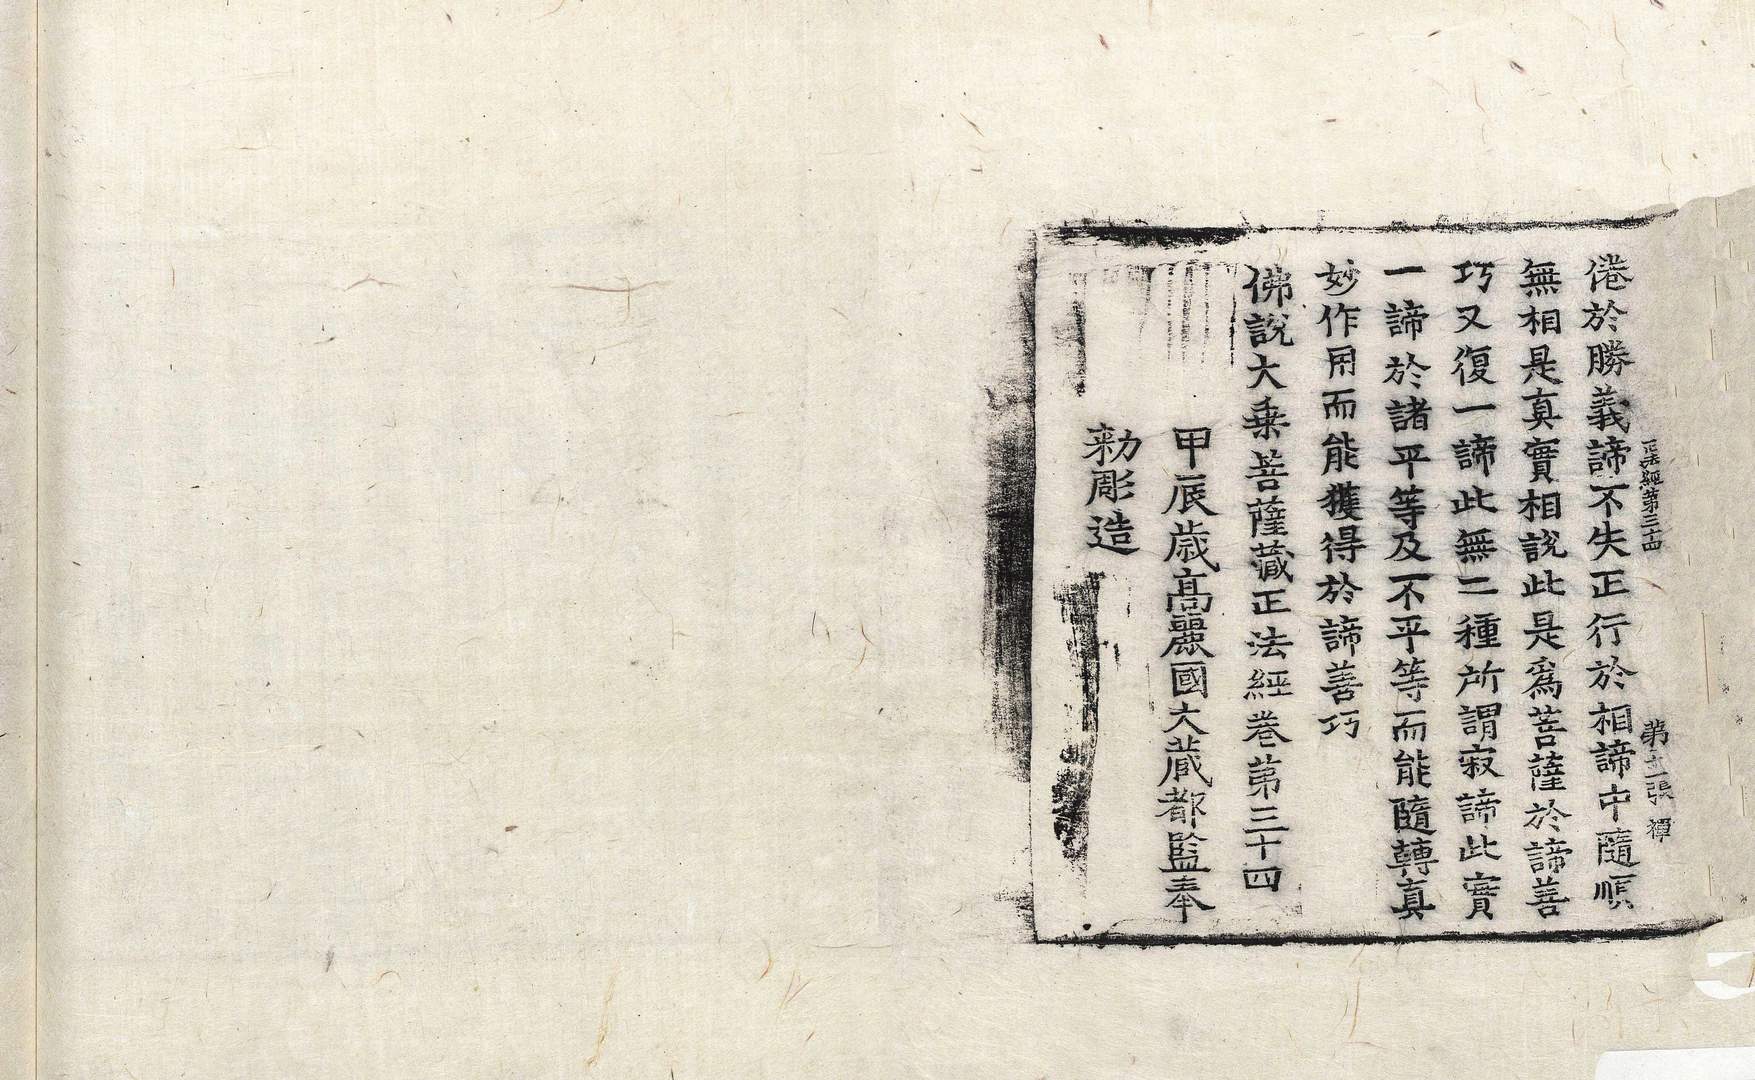 正法經第三十四 第十二張 禪
倦於勝義諦不失正行於相諦中隨順
無相是真實相說此是爲菩薩於諦善
巧又復一諦此無二種所謂寂諦此實
一諦於諸平等及不平等而能隨轉真
妙作用而能獲得於諦善巧
佛說大乗菩薩藏正法經卷第三十四
甲辰歳高麗國大蔵都監奉
勑彫造